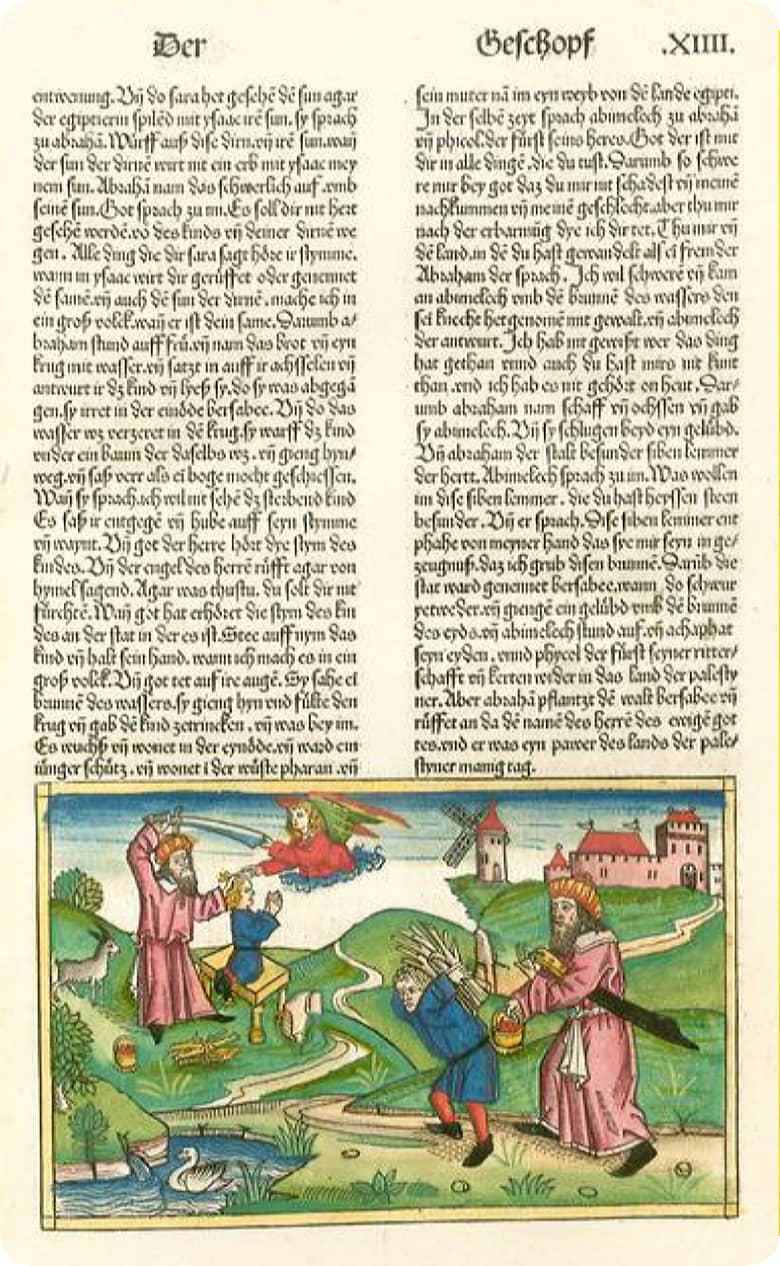 Der
Geschopf .XIIII.
entwenung. Vñ do sara het gesehē dē sun agar
der egiptierin spilēd mit ysaac irē sun. sy sprach
zu abrahā. Würff auß dise dirn vñ irē sun. wañ
der sun der dirnē wirt nit ein erb mit ysaac mey
nem sun. Abrahā nam das schwerlich auf. vmb
seinē sun. Got sprach zu im. Es soll dir nit hert
gesehē werdē. vō des kinds vñ deiner dirnē we
gen. Alle ding die dir sara sagt höre ir stymme.
wann in ysaac wirt dir gerüffet oder genennet
dē samē. vñ auch dē sun der dirnē. mache ich in
ein groß volck. wañ er ist dein same. Darumb a⸗
braham stund auff frü. vñ nam das brot vñ eyn
krug mit wasser. vñ satzt in auff ir achsselen vñ
antwurt ir dz kind vñ lyeß sy. do sy was abgegā
gen. sy irret in der einöde bersabee. Vñ do das
wasser wz verzeret in dē krug. sy warff dz kind
vnder ein baum der daselbs wz. vñ gieng hyn⸗
weg. vñ saß verr als ei boge mocht geschiessen.
Wañ sy sprach. ich wil nit sehē dz sterbend kind
Es saß ir entgegē vñ hube auff seyn stymme
vñ waynt. Vñ got der herre hört dye stym des
kindes. Vñ der engel des herrē rüfft agar von
hymel sagend. Agar was thustu. du solt dir nit
fürchtē. Wañ got hat erhöret die stym des kin
des an der stat in der es ist. Stee auff nym das
kind vñ halt sein hand. wann ich mach es in ein
groß volck. Vñ got tet auf ire augē. Sy sahe eī
brunnē des wassers. sy gieng hyn vnd fülte den
krug vñ gab dē kind zetrincken. vñ was bey im.
Es wuchß vñ wonet in der eynöde. vñ ward ein
iünger schütz. vñ wonet i der wüste pharan. vñ
sein muter nā im eyn weyb von dē lande egipti.
In der selbē zeyt sprach abimelech zu abrahā
vñ phicol. der fürst seins heres. Got der ist mit
dir in alle dingē. die du tust. Darumb so schwe
re mir bey got daz du mir nit schadest vñ meinē
nachkummen vñ meinē geschlecht. aber thu mir
nach der erbarmüg dye ich dir tet. Thu mir vñ
dē land. in dē du hast gewandelt als ei fremder
Abraham der sprach. Ich wil schwerē vñ kam
an abimelech vmb dē brunnē des wassers den
sei knecht het genomē mit gewalt. vñ abimelech
der antwurt. Ich hab nit gewißt wer das ding
hat gethan vnnd auch du hast mirs nit kunt
than. vnd ich hab es nit gehört on heut. Dar⸗
umb abraham nam schaff vñ ochssen vñ gab
sy abimelech. Vñ sy schlugen beyd eyn gelübd.
Vñ abraham der stalt besunder siben lemmer
der hertt. Abimelech sprach zu im. Was wollen
im dise siben lemmer. die du hast heyssen steen
besunder. Vñ er sprach. Dise siben lemmer ent
phahe von meyner hand das sye mir seyn in ge⸗
zeugnuß. daz ich grub disen brunnē. Darüb die
stat ward genennet bersabee. wann do schwur
yetweder. vñ giengē ein gelübd vmb dē brunnē
des eyds. vñ abimelech stund auf. vñ achaphat
seyn eyden. vnnd phycol der fürst seyner ritter⸗
schafft vñ kerten wider in das land der palesty
ner. Aber abrahā pflantzt dē walt bersabee vñ
rüffet an da dē namē des herrē des ewigē got
tes. vnd er was eyn pawer des lands der pale⸗
styner manig tag.